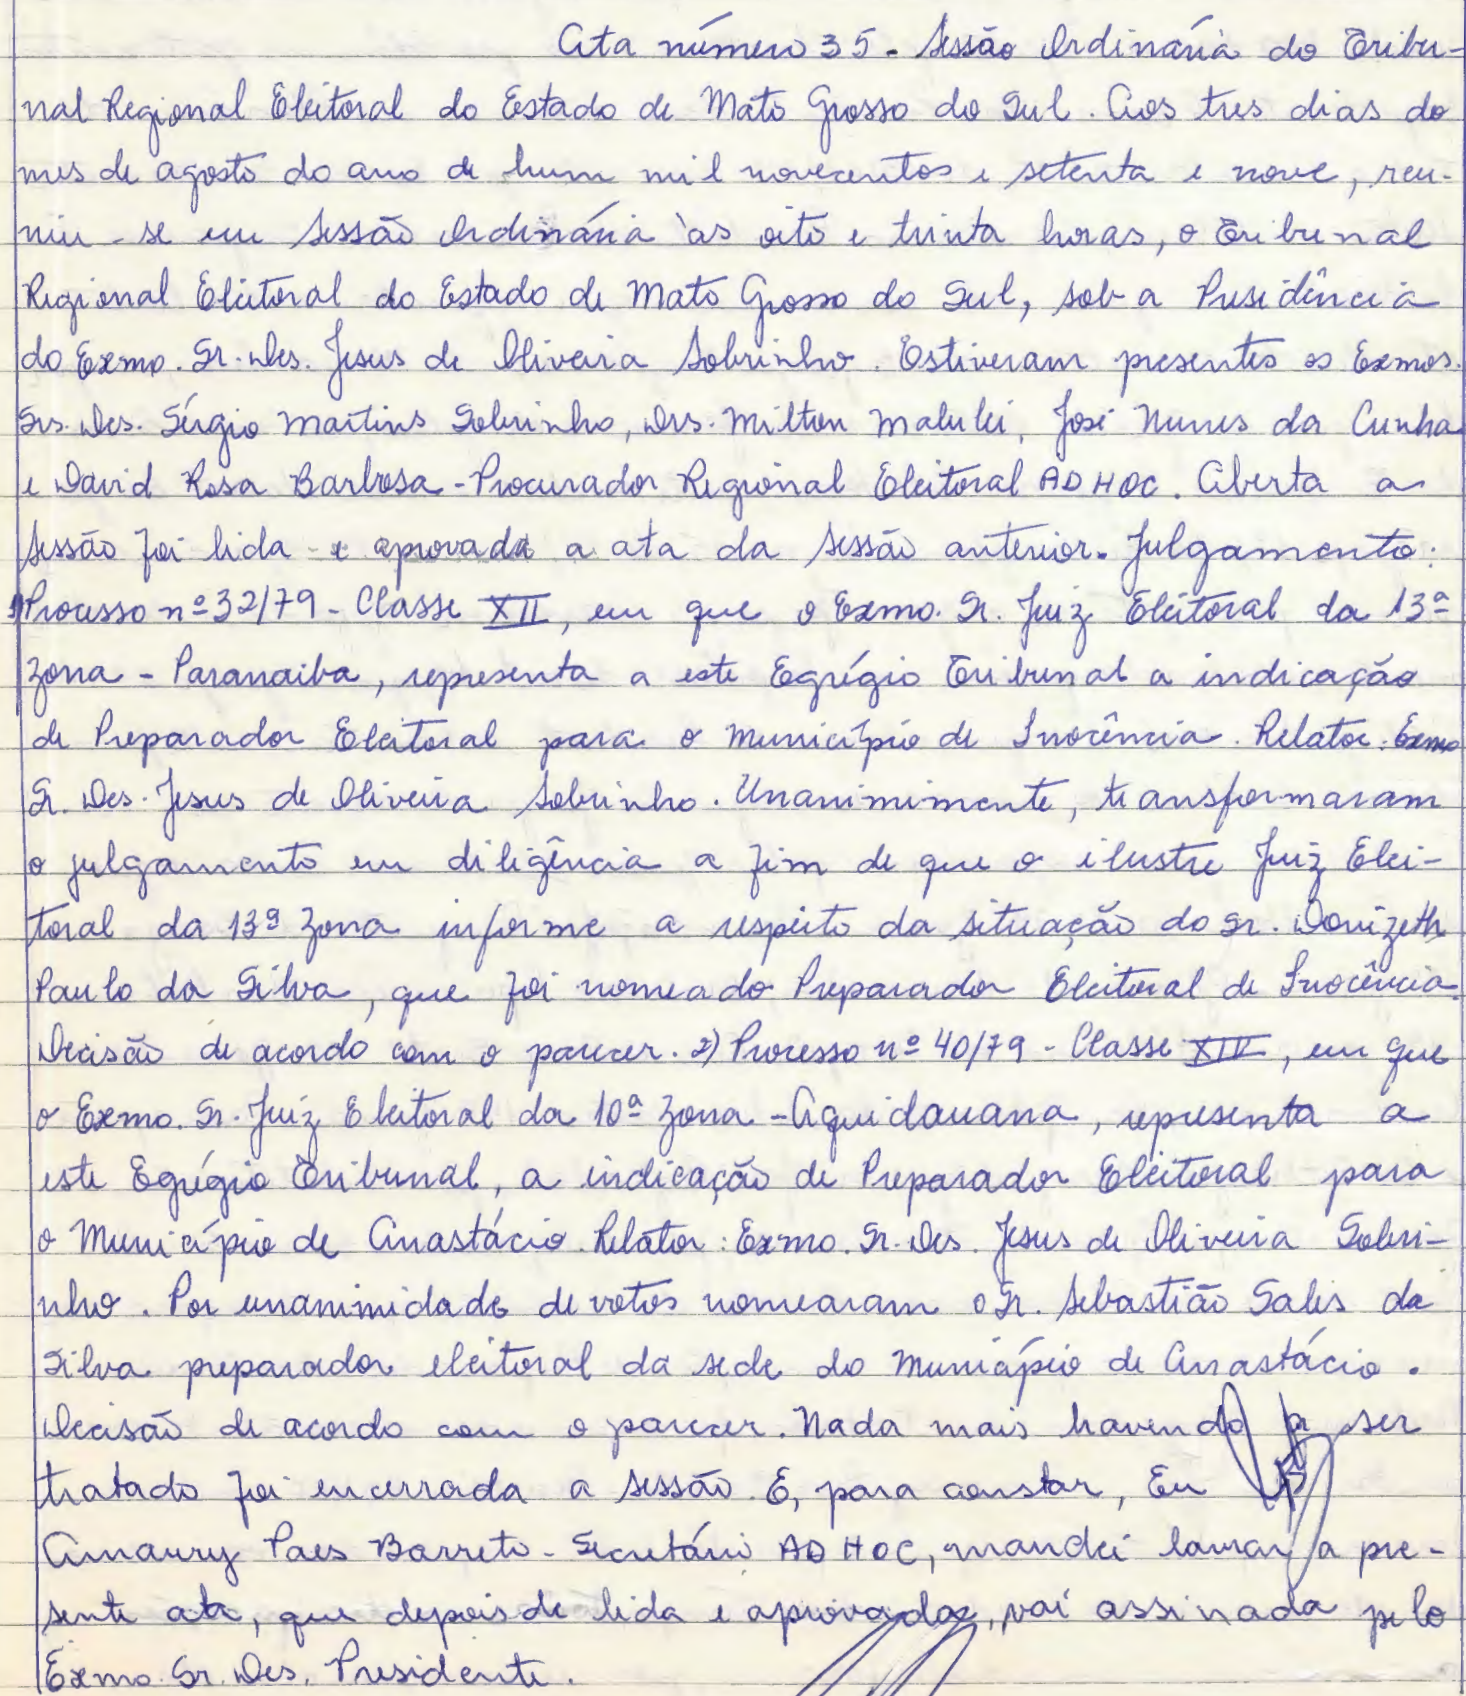 Ata número 35 - Sessão Ordinária do Tribu-
nal Regional Eleitoral do Estado de Mato Grosso do Sul. Aos tres dias do
mes de agosto do ano de hum mil novecentos e setenta e nove, reu-
niu-se em Sessão Ordinária às oito e trinta horas, o Tribunal
Regional Eleitoral do Estado de Mato Grosso do Sul, sob a Presidência
do Exmo. Sr. Des. Jesus de Oliveira Sobrinho. Estiveram presentes os Exmos.
Srs. Des. Sérgio Martins Sobrinho, Drs. Milton Malulei, José Nunes da Cunha
e David Rosa Barbosa - Procurador Regional Eleitoral AD HOC. Aberta a
Sessão foi lida e aprovada a ata da Sessão anterior. Julgamento:
1) Processo nº 32/79 - Classe XII, em que o Exmo. Sr. Juiz Eleitoral da 13ª
Zona - Paranaiba, representa a este Egrégio Tribunal a indicação
de Preparador Eleitoral para o Município de Inocência. Relator: Exmo
Sr. Des. Jesus de Oliveira Sobrinho. Unanimimente, transformaram
o julgamento em diligência a fim de que o ilustre Juiz Elei-
toral da 13ª Zona informe a respeito da situação do Sr. Donizeth
Paulo da Silva, que foi nomeado Preparador Eleitoral de Inocência.
Decisão de acordo com o parecer. 2) Processo nº 40/79 - Classe XIII, em que
o Exmo. Sr. Juiz Eleitoral da 10ª Zona - Aquidauana, representa a
este Egrégio Tribunal, a indicação de Preparador Eleitoral para
o Município de Anastácio. Relator: Exmo. Sr. Des. Jesus de Oliveira Sobri-
nho. Por unanimidade de votos nomearam o Sr. Sebastião Sales da
Silva preparador eleitoral da sede do Município de Anastácio.
Decisão de acordo com o parecer. Nada mais havendo a ser
tratado foi encerrada a Sessão. E, para constar, Eu
Amaury Paes Barreto - Secretário AD HOC, mandei lavrar a pre-
sente ata, que depois de lida e aprovada, vai assinada pelo
Exmo. Sr. Des. Presidente.